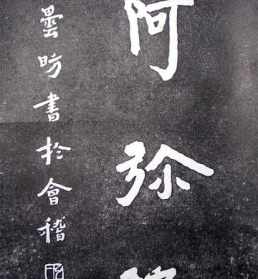 阿弥
曇昉書於會稽